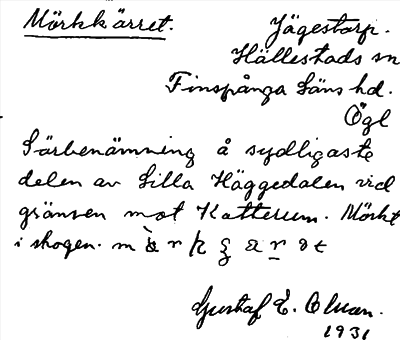 Mörkkärret. Jägestorp.
Hällestads sn
Finspånga läns hd.
Ögl
Särbenämning å sydligaste
delen av Lilla Häggedalen vid
gränsen mot Katterum. Mörkt
i skogen.
Gustaf E.
1931